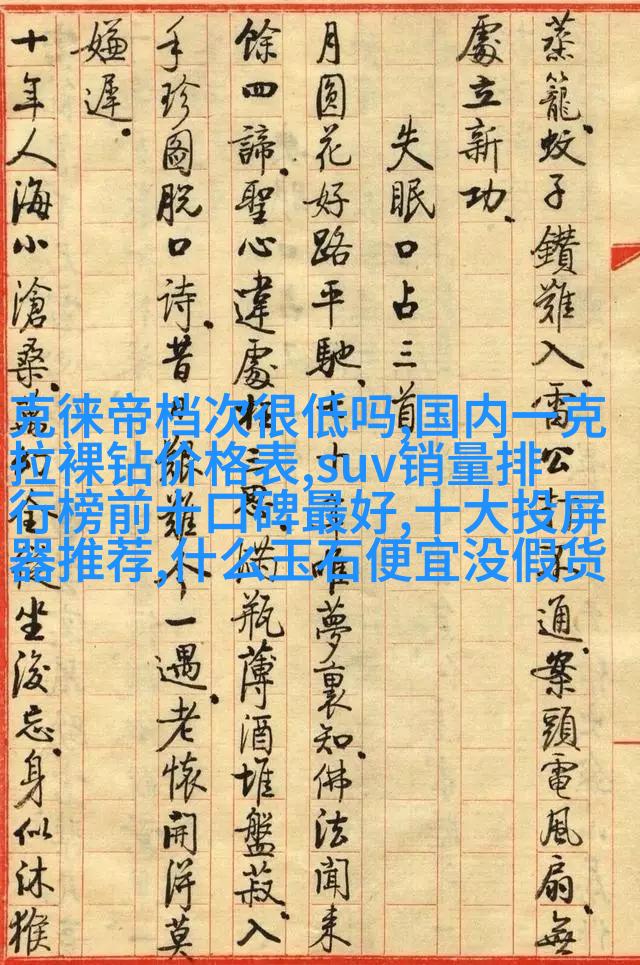 蒸籠。蚊子鑽難入,雷公 通。案頭電風扇,無
處立新功。
失眠口占三首
月圓花好路平馳。 十年唯夢裏知。佛法聞来
餘四諦,聖心違處 三思。滿瓶薄酒堆盤菽,入
手珍圖脱口詩。昔日艱難 一遇,老懷開得莫
嫌遲。
十年人海小滄桑。 全從坐後忘。身似沐猴
克徕帝档次很低吗,国内一克
拉裸钻价格表,suv销量排
行榜前十口碑最好,十大投屏
器推荐,什么玉石便宜没假货